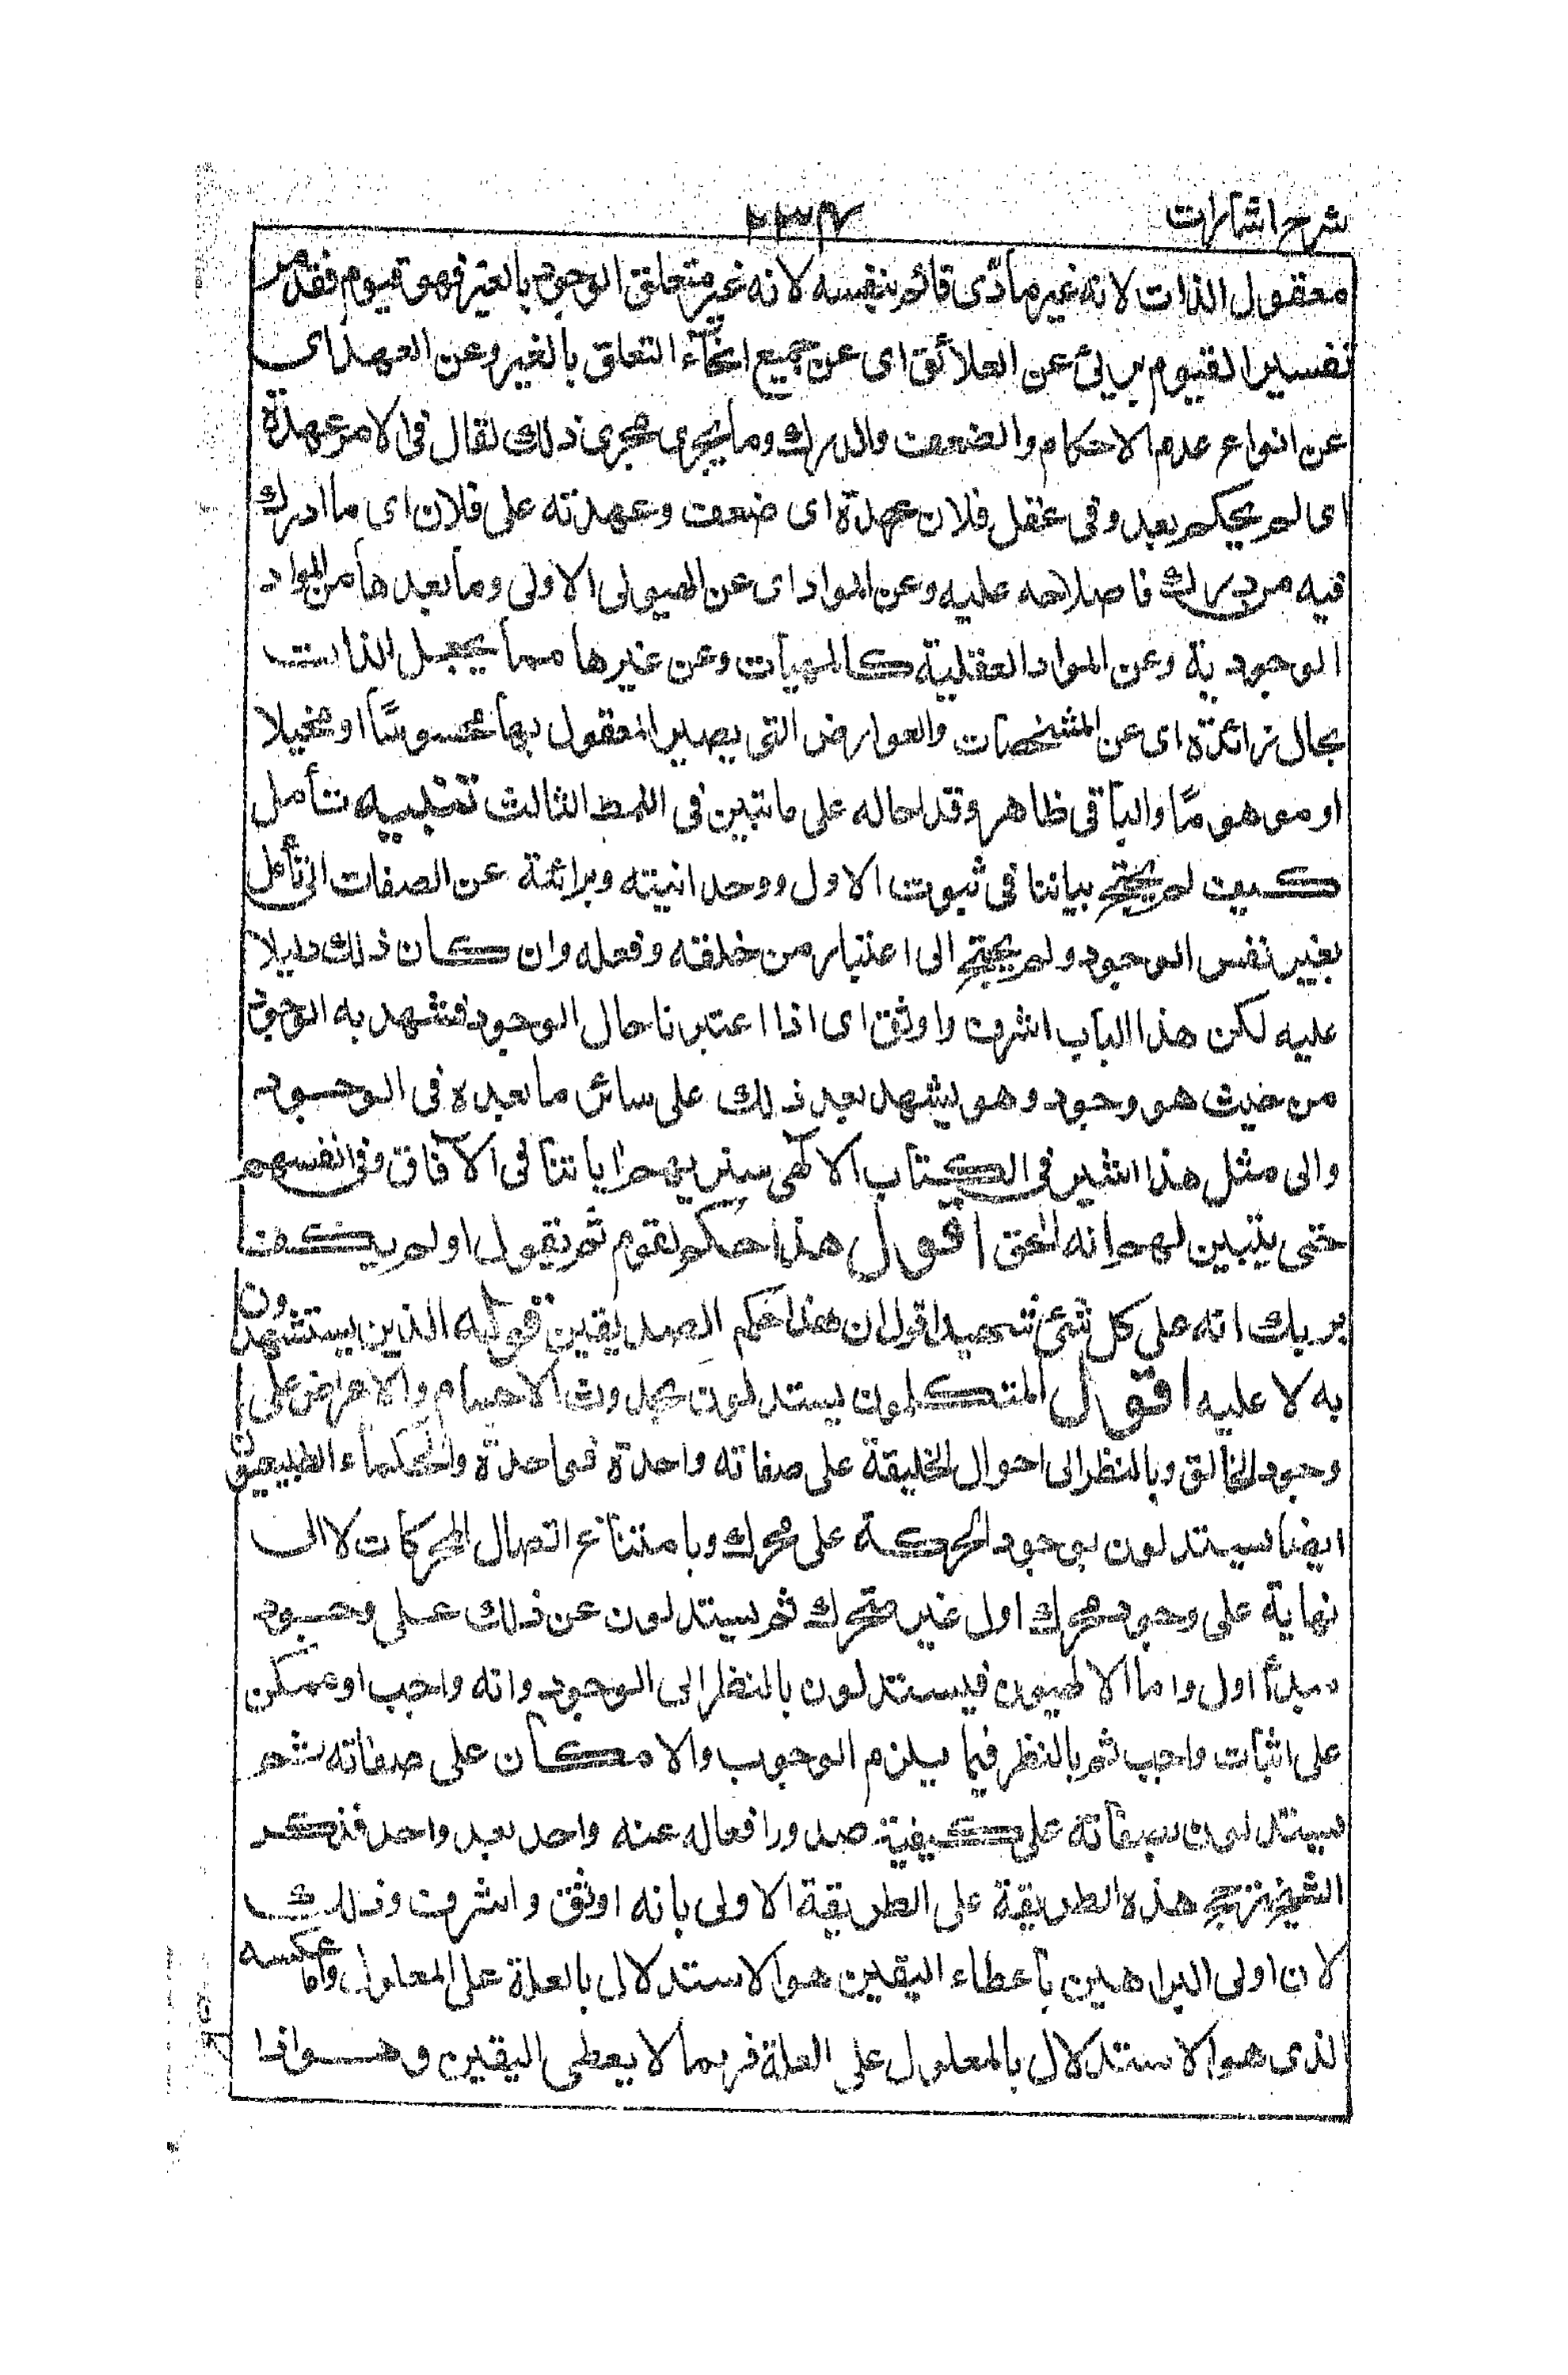 شرح اشارات
معقول الذات لانه غير مادّى قائم بنفسه لانه غير متعلق الوجود بالغير فهو قيوم فقد مر
تفسير القيوم برئ عن العلائق اى عن جميع انحاء التعلق بالغير وعن العهد اى
عن انواع عدم الاحكام والضعف والدرك وما يجرى مجرى ذلك يقال فى الامر عهدة
اى لم يحكم بعد وفى عقل فلان عهدة اى ضعف وعهدته على فلان اى ما ادرك
فيه من درك فاصلاحه عليه وعن المواد اى عن الهيولى الاولى وما بعدها من المواد
الوجودية وعن المواد العقلية كالمهيات وعن غيرها مما يجعل الذات
بحال زائدة اى عن المشخصات والعوارض التى يصير المعقول بها محسوسًا او مخيلا
او موهومًا والباقى ظاهر وقد احاله على ما تبين فى النمط الثالث تنبيه تأمل
كيف لم يحتج بياننا فى ثبوت الاول ووحدانيته وبرائته عن الصفات الى تأمل
بغير نفس الوجود ولم يحتج الى اعتبار من خلقه وفعله وان كان ذلك دليلا
عليه لكن هذا الباب اشرف واوثق اى اذا اعتبرنا حال الوجود فشهد به الوجود
من حيث هو وجود وهو يشهد بعد ذلك على سائر ما بعده فى الوجود
والى مثل هذا اشير فى الكتاب الالهى سنريهم اياتنا فى الآفاق وفى انفسهم
حتى يتبين لهم انه الحق اقول هذا حكم لقوم ثم نقول اولم يكف
بربك انه على كل شئ شهيد اقول ان هذا حكم الصديقين قوله الذين يستشهدون
به لا عليه اقول المتكلمون يستدلون بحدوث الاجسام والاعراض على
وجود الخالق وبالنظر الى احوال الخليقة على صفاته واحدة فواحدة والحكماء الطبيعيون
ايضا يستدلون بوجود الحركة على محرك وبامتناع اتصال المحركات لا الى
نهاية على وجود محرك اول غير متحرك ثم يستدلون عن ذلك على وجود
مبدأ اول واما الالهيون فيستدلون بالنظر الى الوجود وانه واجب او ممكن
على اثبات واجب ثم بالنظر فيما يلزم الوجوب والامكان على صفاته ثم
يستدلون بصفاته على كيفية صدور افعاله عنه واحد بعد واحد فذكر
الشيخ ترجيح هذه الطريقة على الطريقة الاولى بانه اوثق واشرف وذلك
لان اولى البراهين باعطاء اليقين هو الاستدلال بالعلة على المعلول واما عكسه
الذى هو الاستدلال بالمعلول على العلة فربما لا يعطى اليقين وهو اذا